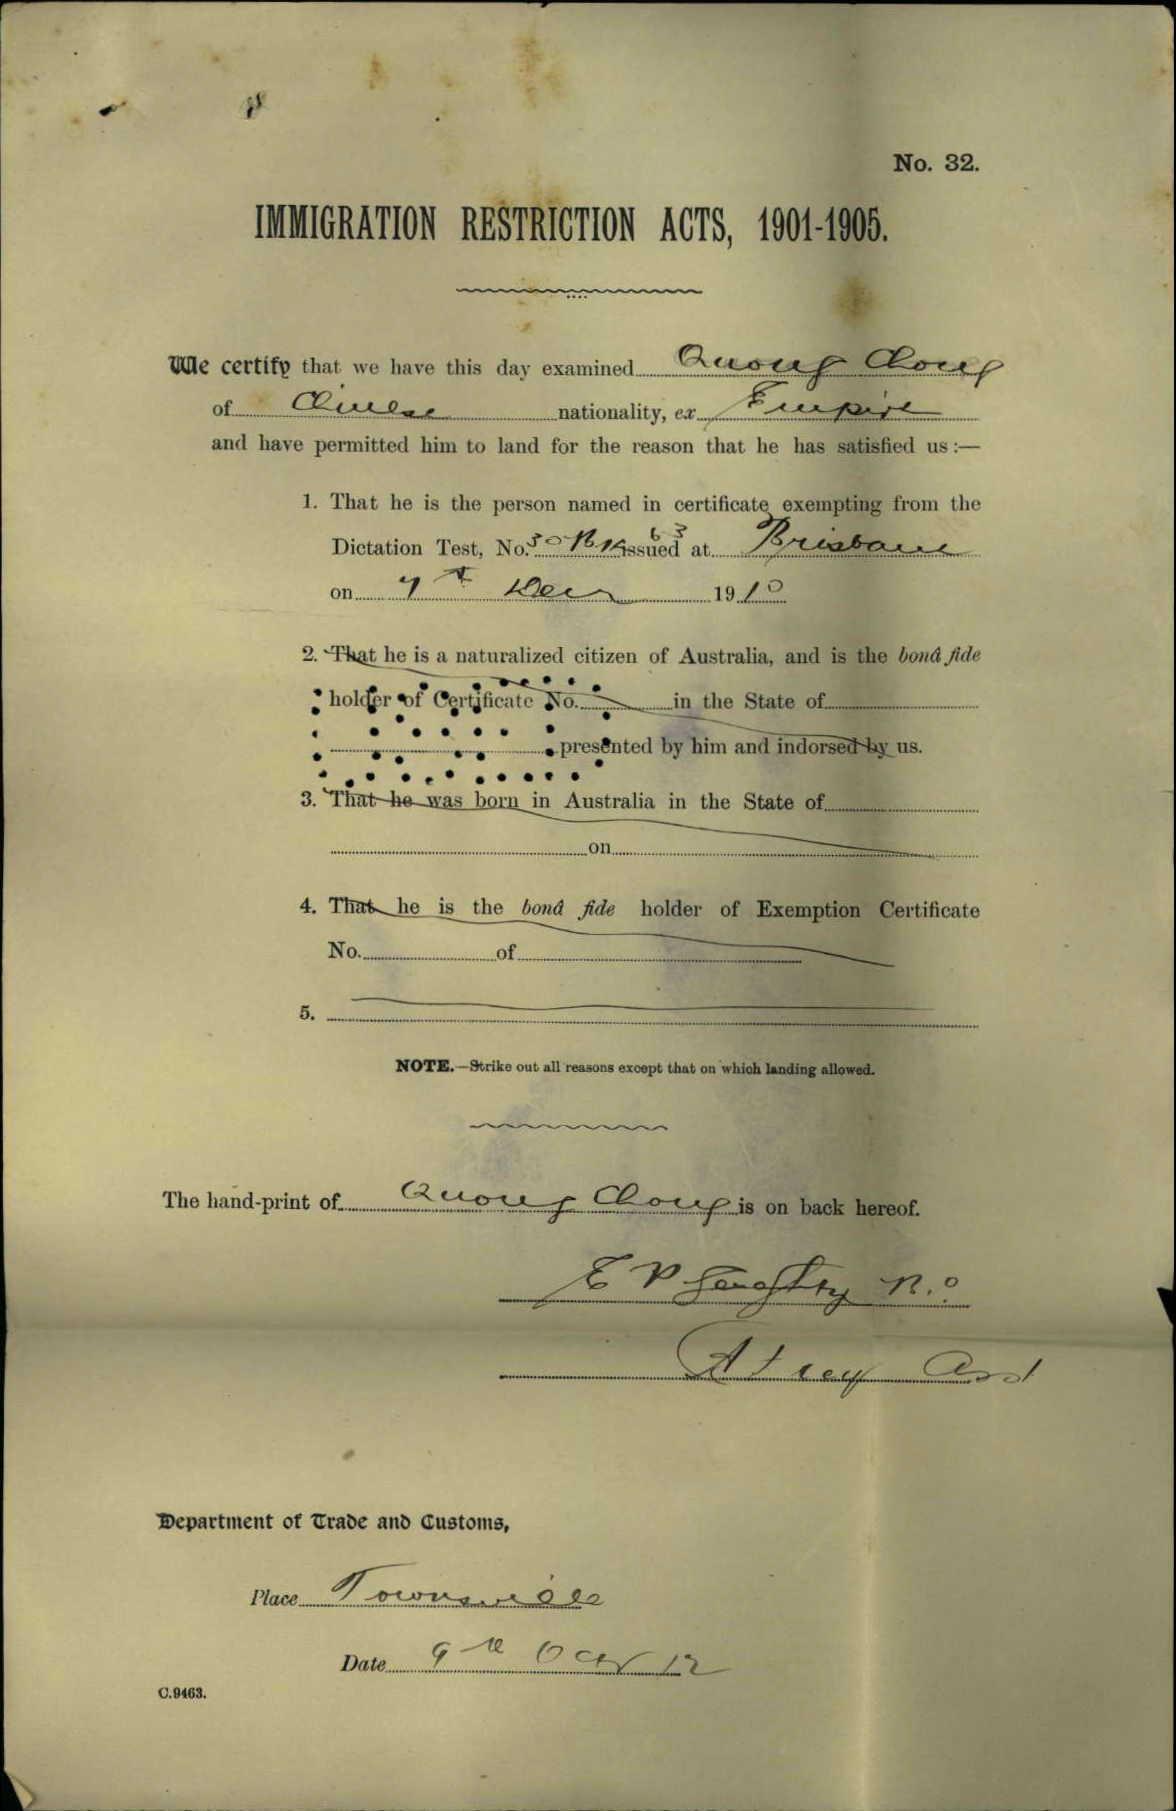 No. 32.
IMMIGRATION RESTRICTION ACTS, 1901-1905.
We certify that we have this day examined Quong Chong
of Chinese nationality, ex Empire
and have permitted him to land for the reason that he has satisfied us :—
1. That he is the person named in certificate exempting from the
Dictation Test, No. 30 Bk 63 issued at Brisbane
on 7th Decr 1910
2. That he is a naturalized citizen of Australia, and is the bonâ fide
holder of Certificate No. in the State of
presented by him and indorsed by us.
3. That he was born in Australia in the State of
on
4. That he is the bonâ fide holder of Exemption Certificate
No. of
5.
NOTE.—Strike out all reasons except that on which landing allowed.
The hand-print of Quong Chong is on back hereof.
E P
A
Department of Trade and Customs,
Place Townsville
Date 9th Octr 12
C.9463.